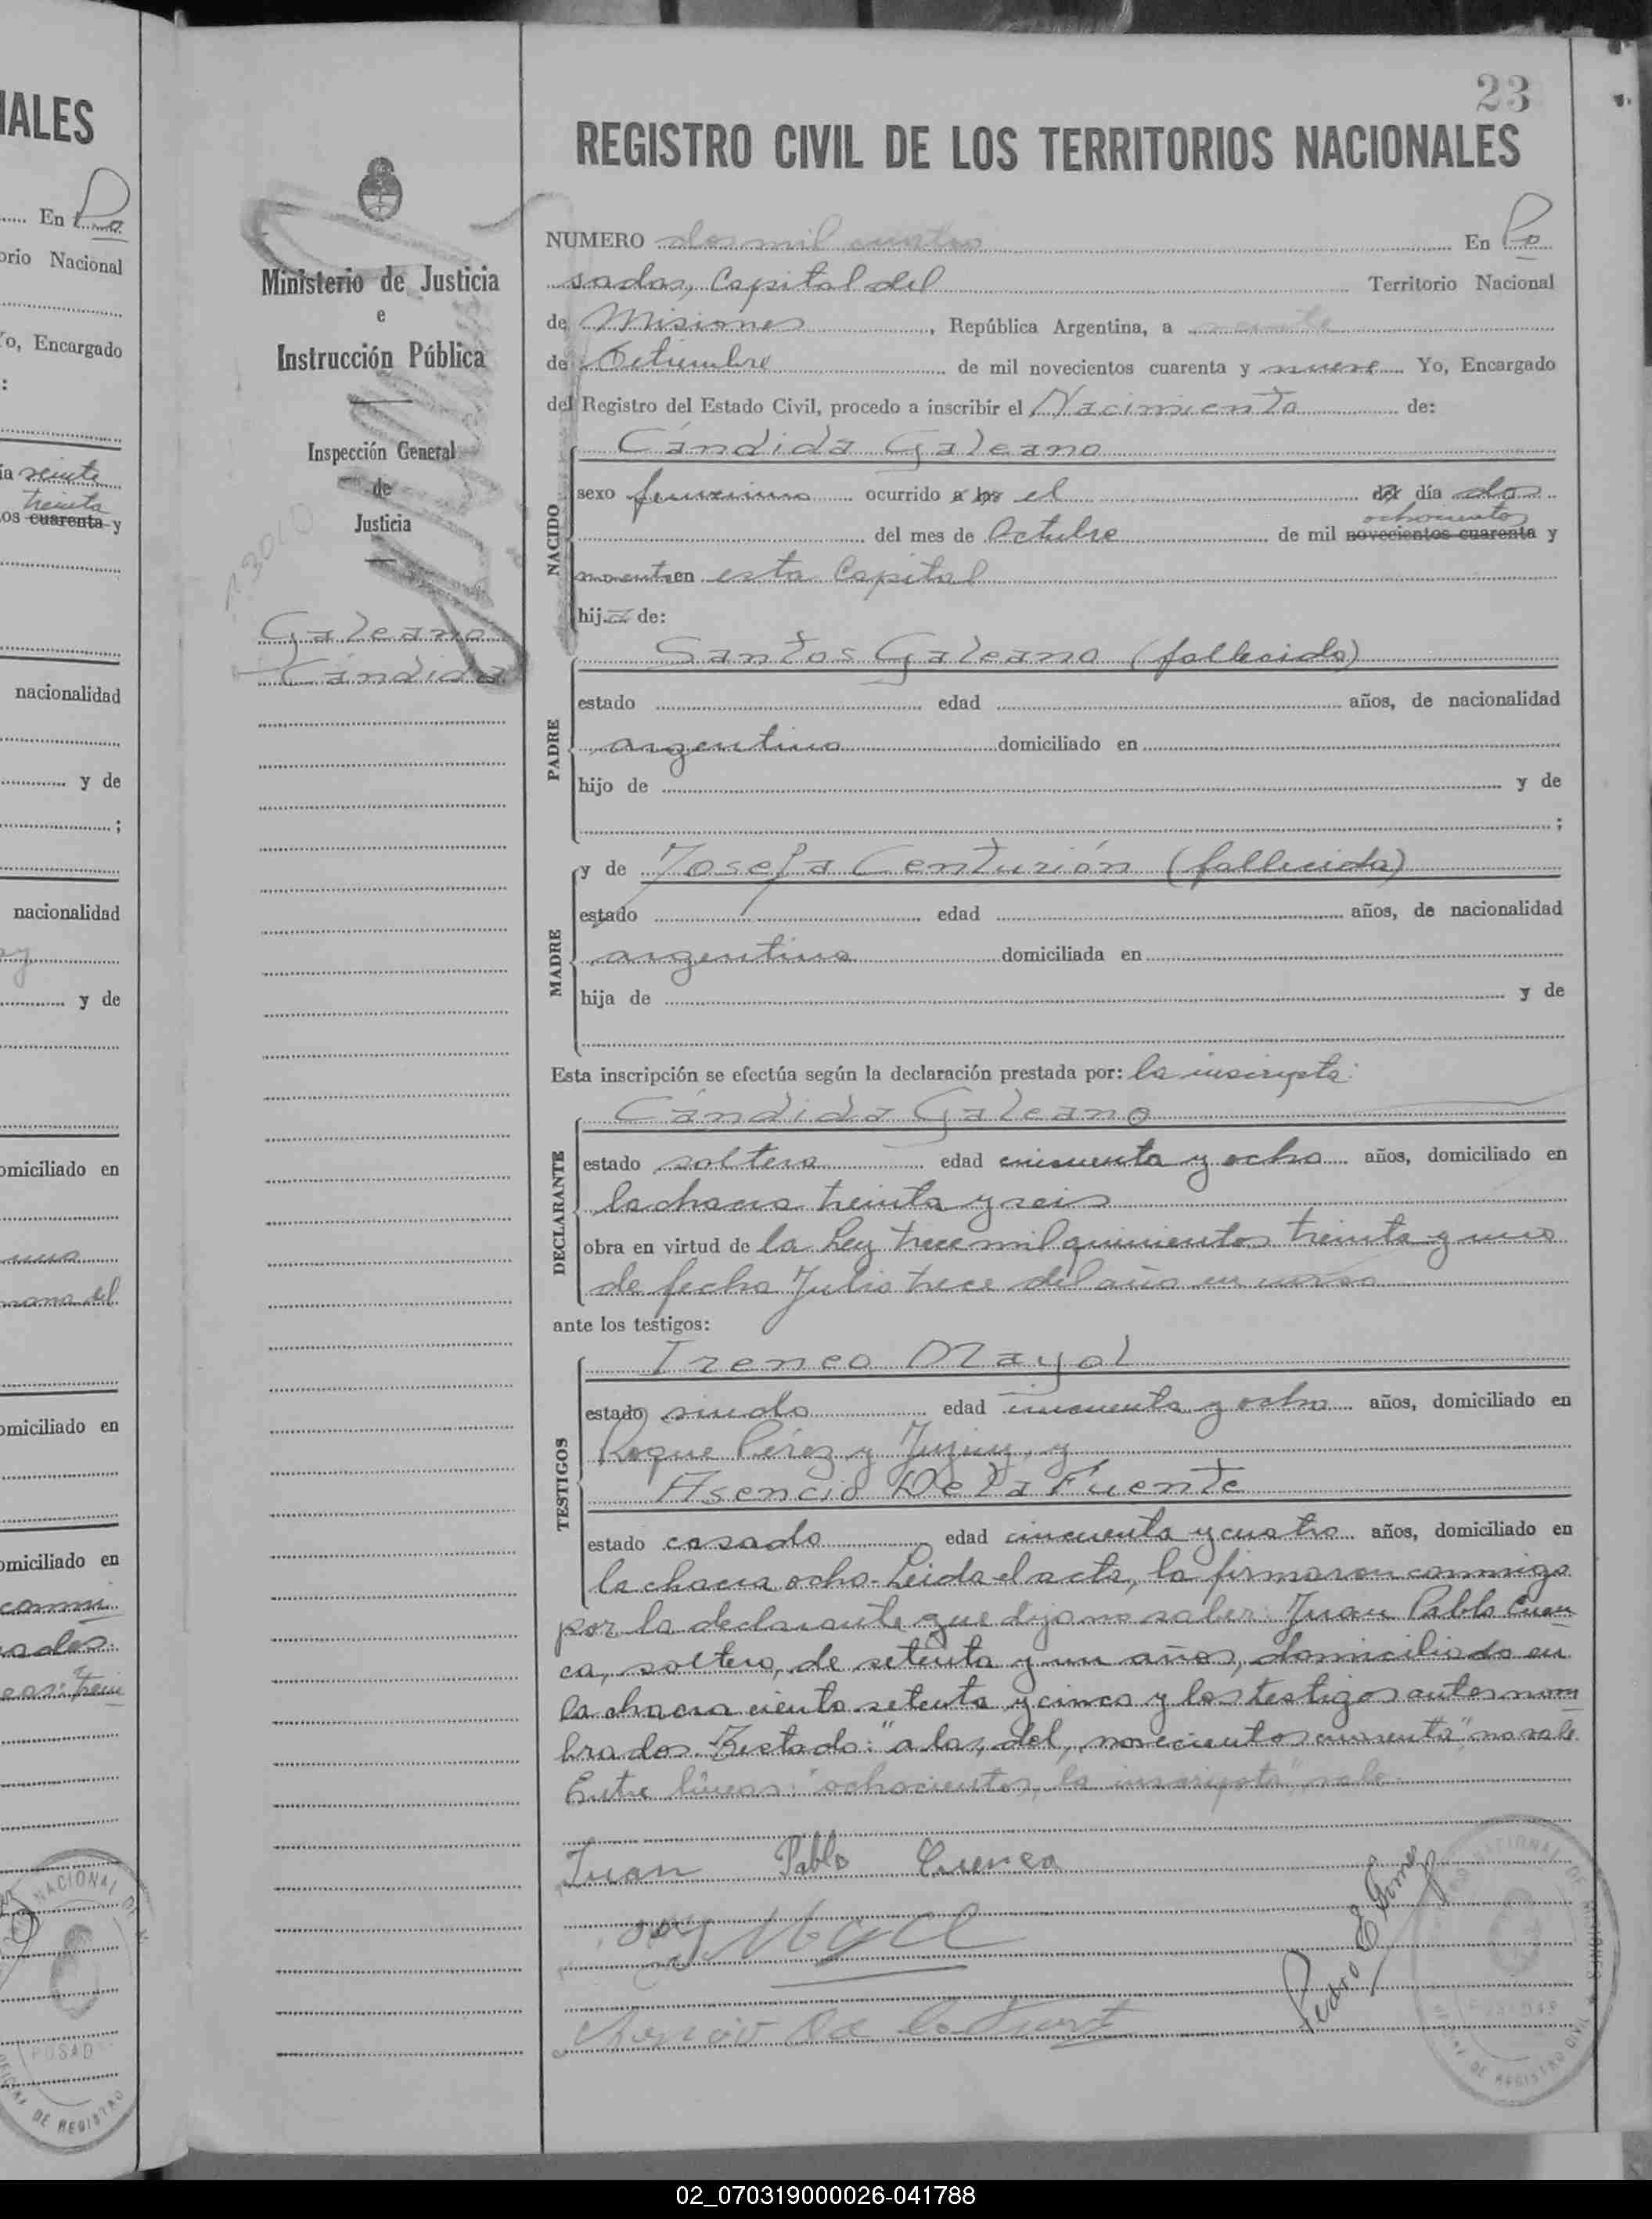 23
REGISTRO CIVIL DE LOS TERRITORIOS NACIONALES
NUMERO dos mil cuatro En Po
sadas, Capital del Territorio Nacional
de Misiones, República Argentina, a
de Setiembre de mil novecientos cuarenta y nueve Yo, Encargado
del Registro del Estado Civil, procedo a inscribir el Nacimiento de:
NACIDO
Cándida Galeano
sexo femenino ocurrido a las el del día dos
ochocientos
del mes de Octubre de mil novecientos cuarenta y
noventa en esta Capital
hija de:
PADRE
Santos Galeano (fallecido)
estado edad años, de nacionalidad
argentino domiciliado en
hijo de y de
;
MADRE
y de Josefa Centurión (fallecida)
estado edad años, de nacionalidad
argentina domiciliada en
hija de y de
Esta inscripción se efectúa según la declaración prestada por: la inscripta:
DECLARANTE
Cándida Galeano
estado soltera edad cincuenta y ocho años, domiciliado en
la chacra treinta y seis
obra en virtud de la Ley trece mil quinientos treinta y uno
de fecha Julio trece del año en curso
ante los testigos:
TESTIGOS
Ireneo Mayol
estado viudo edad cincuenta y ocho años, domiciliado en
Roque Pérez y Jujuy, y
Asencio De la Fuente
estado casado edad cincuenta y cuatro años, domiciliado en
la chacra ocho. Leída el acta, la firmaron conmigo
por la declarante que dijo no saber: Juan Pablo Cuen
ca, soltero, de setenta y un años, domiciliado en
la chacra ciento setenta y cinco y los testigos antes nom
brados. Testado: "a las, del, novecientos cuarenta", no vale.
Entre líneas: "ochocientos, la inscripta" vale.
Juan Pablo Cuenca
Asencio De la Fuente
Pedro E Gomez
Ministerio de Justicia
e
Instrucción Pública
Inspección General
de
Justicia
Galeano
Cándida
IALES
En Po
orio Nacional
Yo, Encargado
:
ía veinte
treinta
os cuarenta y
nacionalidad
y de
;
nacionalidad
y de
omiciliado en
mana del
omiciliado en
omiciliado en
NACIONAL DE MISIONES
POSADAS
OFICINA DE REGISTRO CIVIL
02_070319000026-041788